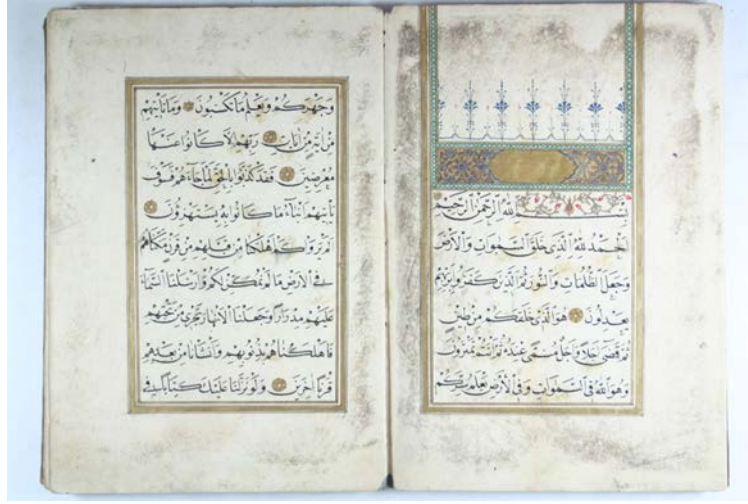 بِسْمِ اللّٰهِ الرَّحْمٰنِ الرَّحِيمِ
اَلْحَمْدُ لِلّٰهِ الَّذِي خَلَقَ السَّمٰوَاتِ وَالْاَرْضَ
وَجَعَلَ الظُّلُمَاتِ وَالنُّورَ ثُمَّ الَّذِينَ كَفَرُوا بِرَبِّهِمْ
يَعْدِلُونَ هُوَ الَّذِي خَلَقَكُمْ مِنْ طِينٍ
ثُمَّ قَضٰى اَجَلًا وَاَجَلٌ مُسَمًّى عِنْدَهُ ثُمَّ اَنْتُمْ تَمْتَرُونَ
وَهُوَ اللّٰهُ فِي السَّمٰوَاتِ وَفِي الْاَرْضِ يَعْلَمُ سِرَّكُمْ
وَجَهْرَكُمْ وَيَعْلَمُ مَا تَكْسِبُونَ وَمَا تَأْتِيهِمْ
مِنْ اٰيَةٍ مِنْ اٰيَاتِ رَبِّهِمْ اِلَّا كَانُوا عَنْهَا
مُعْرِضِينَ فَقَدْ كَذَّبُوا بِالْحَقِّ لَمَّا جَاءَهُمْ فَسَوْفَ
يَأْتِيهِمْ اَنْبَاءُ مَا كَانُوا بِهِ يَسْتَهْزِؤُنَ
اَلَمْ يَرَوْا كَمْ اَهْلَكْنَا مِنْ قَبْلِهِمْ مِنْ قَرْنٍ مَكَّنَّاهُمْ
فِي الْاَرْضِ مَا لَمْ نُمَكِّنْ لَكُمْ وَاَرْسَلْنَا السَّمَاءَ
عَلَيْهِمْ مِدْرَارًا وَجَعَلْنَا الْاَنْهَارَ تَجْرِي مِنْ تَحْتِهِمْ
فَاَهْلَكْنَاهُمْ بِذُنُوبِهِمْ وَاَنْشَأْنَا مِنْ بَعْدِهِمْ
قَرْنًا اٰخَرِينَ وَلَوْ نَزَّلْنَا عَلَيْكَ كِتَابًا فِي